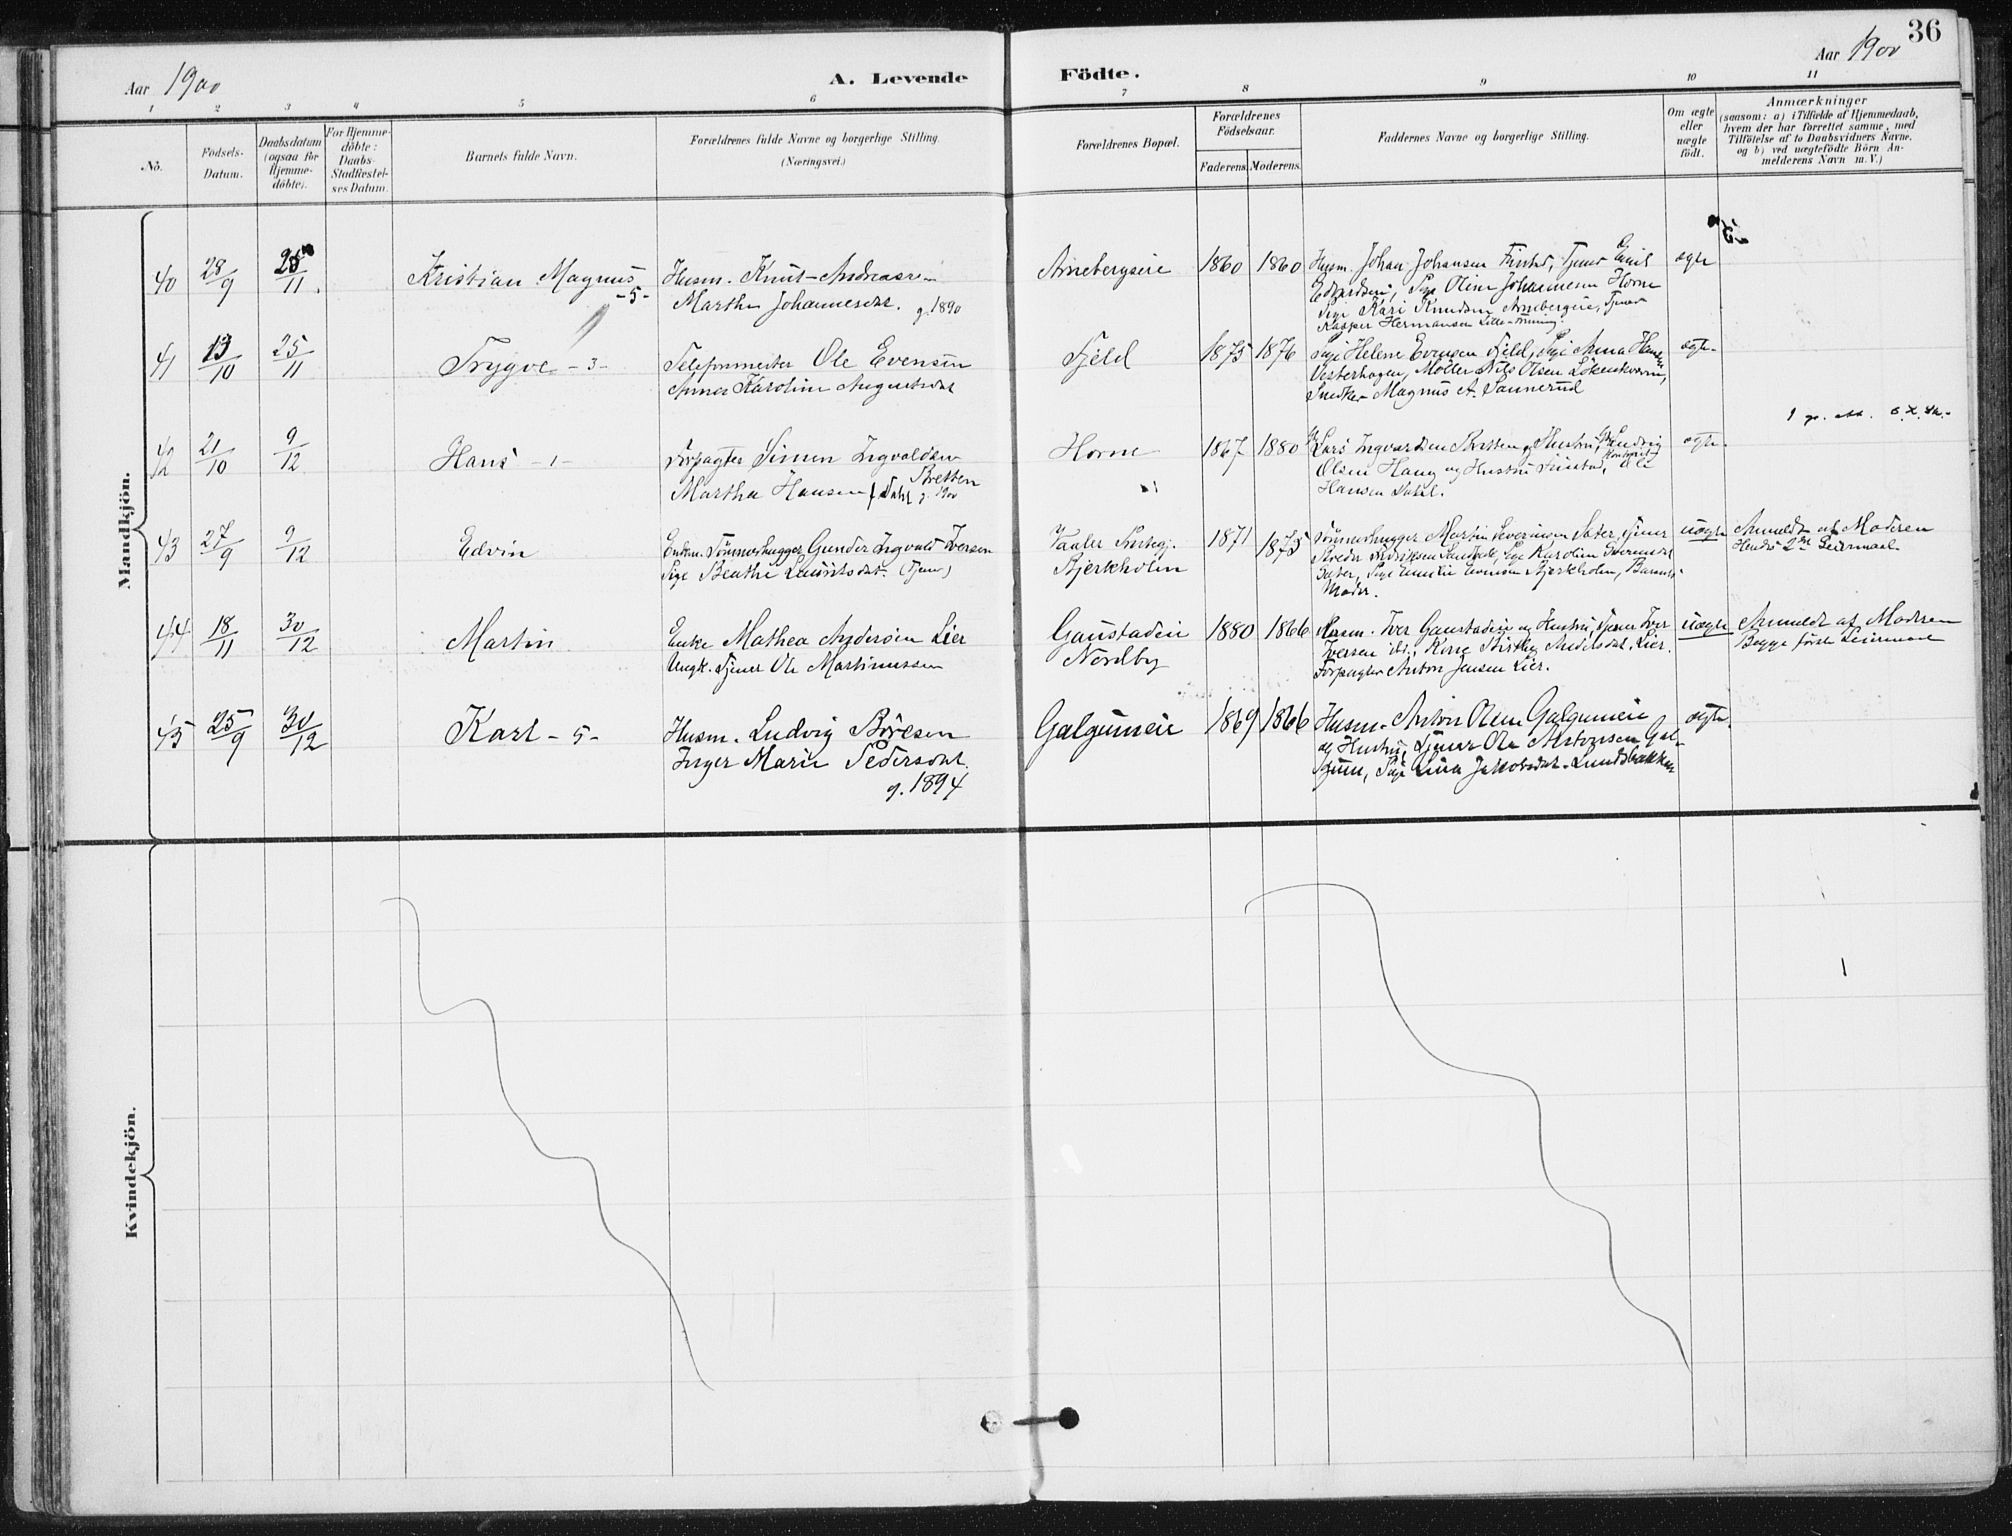 36
Aar 1900
A. Levende Födte.
Aar 1900
1 2 3 4 5 6 7 8 9 10 11
No.
Födsels-Datum.
Daabsdatum (ogsaa för Hjemme-döbte).
For Hjemme-döbte: Daabs-Stadfæstel-ses Datum.
Barnets fulde Navn.
Forældrenes fulde Navne og borgerlige Stilling. (Næringsvei.)
Forældrenes Bopæl.
Forældrenes Födselsaar.
Faderens. Moderens.
Faddernes Navne og borgerlige Stilling.
Om ægte eller uægte födt.
Anmærkninger
(saasom: a) i Tilfælde af Hjemmedaab, hvem der har forrettet samme, med Tilföielse af to Daabsvidners Navne, og b) ved uægtefödte Börn Anmelderens Navn m. V.)
Mandkjön.
40 28/9 25/11 Kristian Magnus -5- Husm. Knut Andreasen Arnebergseie 1860 1860 Husm. Johan Johansen Finstad, Tjener Emil ægte
Marthe Johannesdat. g. 1890 Edvardsen, Pige Oline Johannesen Horne
Pige Kari Knudsen Arnebergseie, Tjener
Kasper Hermansen
41 13/10 25/11 Trygve -3- Telefonmester Ole Evensen Fjeld 1875 1876 Pige Helene Evensen Fjeld, Pige Anna Hansen ægte
Anna Karoline Augustsdat Vesterhagen, Möller Nils Olsen Lökenkværn,
Snedker Magnus A. Sannerud
42 21/10 9/12 Hans -1- Forpagter Simen Ingvaldsen Bretten Horne 1867 1880 Lars Ingvardsen Bretten og Hustru, Ludvig ægte
Martha Hansen f. Dahl g. 1900 Olsen Haug og Hustru Finstad, Ole
Hansen Dahl.
43 27/9 9/12 Edvin Enkem. Tömmerhugger Gunder Ingvald Iversen Vaaler Prstegj. 1871 1875 Tömmerhugger Martin Severinsen Sæter, Tjener uægte Anmeldt af Moderen
Pige Beathe Lauritsdat. (Tjener) Bjerkholen Pige Karoline Iversdat Hendes 2det Leiermaal.
Sæter, Pige Emilie Evensen Bjerkholen, Barnets
Moder.
44 18/11 30/12 Martin Enke Mathea Andersen Lier Gaustadeie 1880 1866 Husm. Iver Gaustadeie og Hustru, Tjener Iver uægte Anmeldt af Moderen
Ungk. Tjener Ole Martinussen Nordby Iversen ibd., Kone Andersdat. Lier. Begge förste Leiermaal
Forpagter Anton Jensen Lier.
45 25/9 30/12 Karl -5- Husm. Ludvig Böresen Galgumeie 1869 1866 Husm. Anton Olsen Galgumeie ægte.
Inger Marie Pedersdat. og Hustru, Tjener Ole Antonsen Gal-
g. 1894 gum, Pige Lina Jakobsdat. Lundsbakken
Kvindekjön.